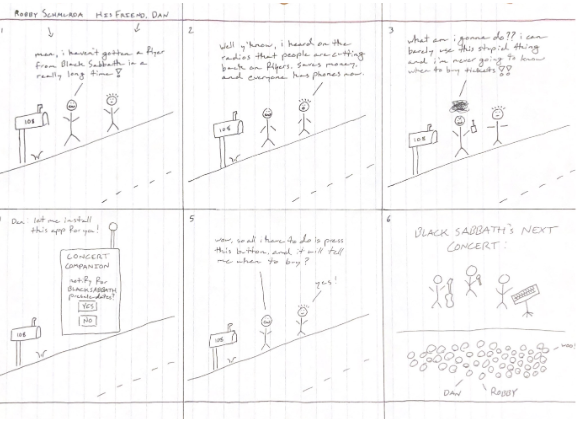 ROBBY SCHMURDA
HIS FRIEND, DAN
1
man, i haven't gotten a flyer
from Black Sabbath in a
really long time!
108
2
Well y'know, i heard on the
radios that people are cutting
back on flyers. Saves money,
and everyone has phones now.
108
3
what am i gonna do?? i can
barely use this stupid thing
and i'm never going to know
when to buy tickets!!
108
Dan: let me install
this app for you!
CONCERT
COMPANION
notify for
BLACK SABBATH
presale dates?
YES
NO
108
5
wow, so all i have to do is press
this button, and it will tell
me when to buy?
yes!
108
6
BLACK SABBATH'S NEXT
CONCERT:
woo!
DAN
ROBBY